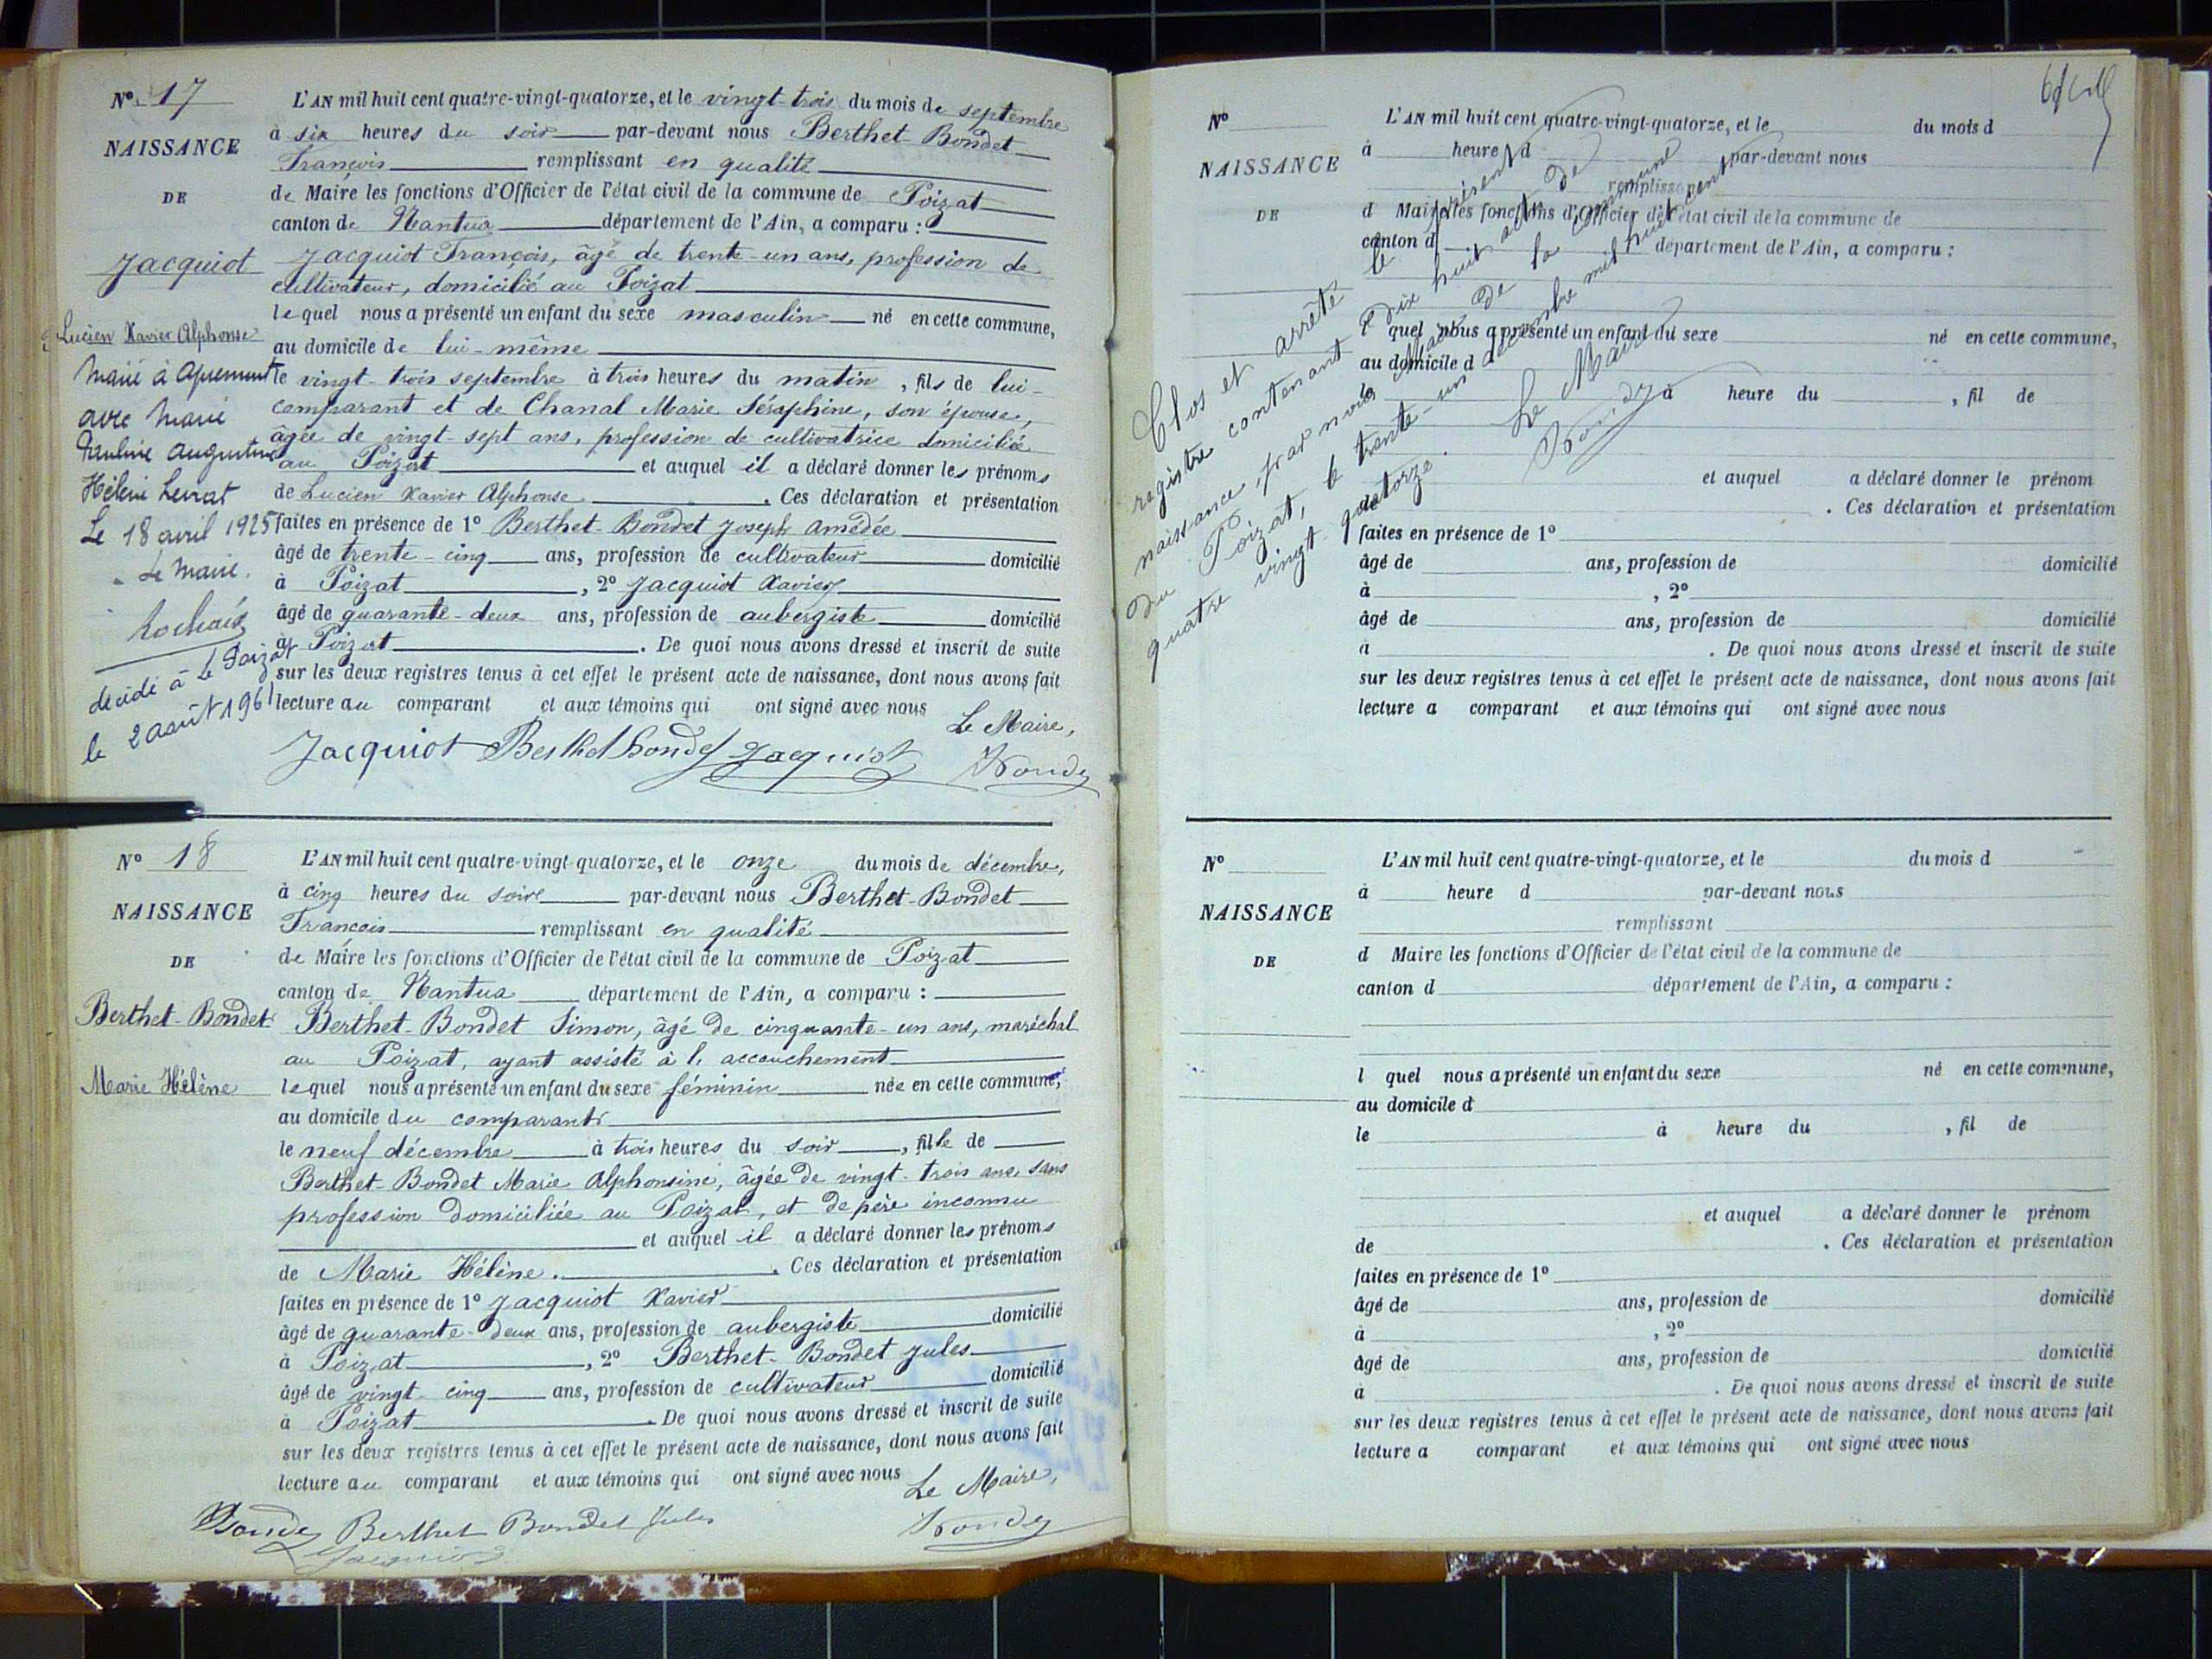 N° 17
NAISSANCE
DE
Jacquiot
Lucien Xavier Alphonse
Marié à Apremont
avec Marie
Pauline Augustine
Hélène Levrat
Le 18 avril 1925
Le Maire.
décédé à Le Poizat
le 2 août 1961
L'AN mil huit cent quatre-vingt-quatorze, et le vingt-trois du mois de septembre
à six heures du soir par-devant nous Berthet-Bondet
François remplissant en qualité
de Maire les fonctions d'Officier de l'état civil de la commune de Poizat
canton de Nantua département de l'Ain, a comparu :
Jacquiot François, âgé de trente-un ans, profession de
cultivateur, domicilié au Poizat
lequel nous a présenté un enfant du sexe masculin né en cette commune,
au domicile de lui-même
le vingt-trois septembre à trois heures du matin, fils de lui-
comparant et de Chanal Marie Séraphine, son épouse,
âgée de vingt-sept ans, profession de cultivatrice domiciliée
au Poizat et auquel il a déclaré donner les prénoms
de Lucien Xavier Alphonse. Ces déclaration et présentation
faites en présence de 1° Berthet-Bondet Joseph Amédée
âgé de trente-cinq ans, profession de cultivateur domicilié
à Poizat, 2° Jacquiot Xavier
âgé de quarante-deux ans, profession de aubergiste domicilié
à Poizat. De quoi nous avons dressé et inscrit de suite
sur les deux registres tenus à cet effet le présent acte de naissance, dont nous avons fait
lecture au comparant et aux témoins qui ont signé avec nous
Le Maire,
Jacquiot Berthet bondet Jacquiot
N° 18
NAISSANCE
DE
Berthet-Bondet
Marie Hélène
L'AN mil huit cent quatre-vingt-quatorze, et le onze du mois de décembre,
à cinq heures du soir par-devant nous Berthet-Bondet
François remplissant en qualité
de Maire les fonctions d'Officier de l'état civil de la commune de Poizat
canton de Nantua département de l'Ain, a comparu :
Berthet-Bondet Simon, âgé de cinquante-un ans, maréchal
au Poizat, ayant assisté à l'accouchement
lequel nous a présenté un enfant du sexe féminin née en cette commune,
au domicile du comparant
le neuf décembre à trois heures du soir, fille de
Berthet-Bondet Marie Alphonsine, âgée de vingt-trois ans, sans
profession domiciliée au Poizat, et de père inconnu
et auquel il a déclaré donner les prénoms
de Marie Hélène. Ces déclaration et présentation
faites en présence de 1° Jacquiot Xavier
âgé de quarante-deux ans, profession de aubergiste domicilié
à Poizat, 2° Berthet-Bondet Jules
âgé de vingt-cinq ans, profession de cultivateur domicilié
à Poizat. De quoi nous avons dressé et inscrit de suite
sur les deux registres tenus à cet effet le présent acte de naissance, dont nous avons fait
lecture au comparant et aux témoins qui ont signé avec nous
Le Maire,
Berthet Bondet Jules
Jacquiot
N°
NAISSANCE
DE
L'AN mil huit cent quatre-vingt-quatorze, et le du mois d
à heure d par-devant nous
remplissant
d Maire les fonctions d'Officier de l'état civil de la commune de
canton d département de l'Ain, a comparu :
l quel nous a présenté un enfant du sexe né en cette commune,
au domicile d
le à heure du , fil de
et auquel a déclaré donner le prénom
de . Ces déclaration et présentation
faites en présence de 1°
âgé de ans, profession de domicilié
à , 2°
âgé de ans, profession de domicilié
à . De quoi nous avons dressé et inscrit de suite
sur les deux registres tenus à cet effet le présent acte de naissance, dont nous avons fait
lecture a comparant et aux témoins qui ont signé avec nous
Clos et arrêté le présent
registre contenant dix huit actes de
naissance, par nous Maire de la commune
du Poizat, le trente-un décembre mil huit cent
quatre vingt quatorze.
Le Maire
N°
NAISSANCE
DE
L'AN mil huit cent quatre-vingt-quatorze, et le du mois d
à heure d par-devant nous
remplissant
d Maire les fonctions d'Officier de l'état civil de la commune de
canton d département de l'Ain, a comparu :
l quel nous a présenté un enfant du sexe né en cette commune,
au domicile d
le à heure du , fil de
et auquel a déclaré donner le prénom
de . Ces déclaration et présentation
faites en présence de 1°
âgé de ans, profession de domicilié
à , 2°
âgé de ans, profession de domicilié
à . De quoi nous avons dressé et inscrit de suite
sur les deux registres tenus à cet effet le présent acte de naissance, dont nous avons fait
lecture a comparant et aux témoins qui ont signé avec nous